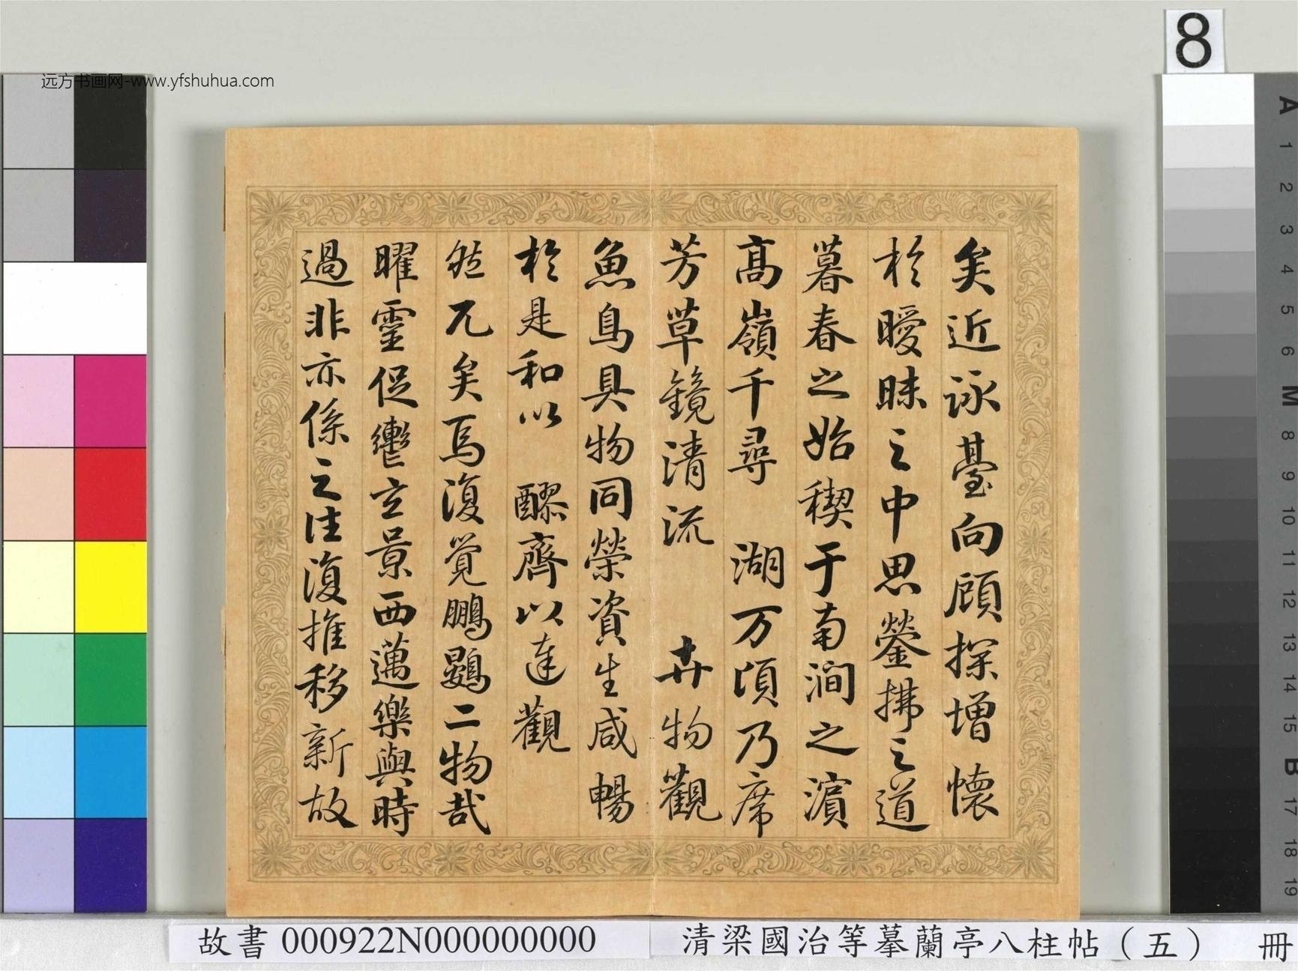 远方书画网-www.yfshuhua.com
8
矣近詠臺向顧探增懷
於曖昧之中思鎣拂之道
暮春之始稧于南澗之濱
高嶺千尋 湖万頃乃席
芳草鏡清流 卉物觀
魚鳥具物同榮資生咸暢
於是和以 醪齊以達觀
然兀矣焉復覺鵬鷃二物哉
曜靈促轡立景西邁樂與時
過非亦係之往復推移新故
A
1
2
3
4
5
6
M
8
9
10
11
12
13
14
15
B
17
18
19
故書 000922N000000000
清梁國治等摹蘭亭八柱帖（五） 冊